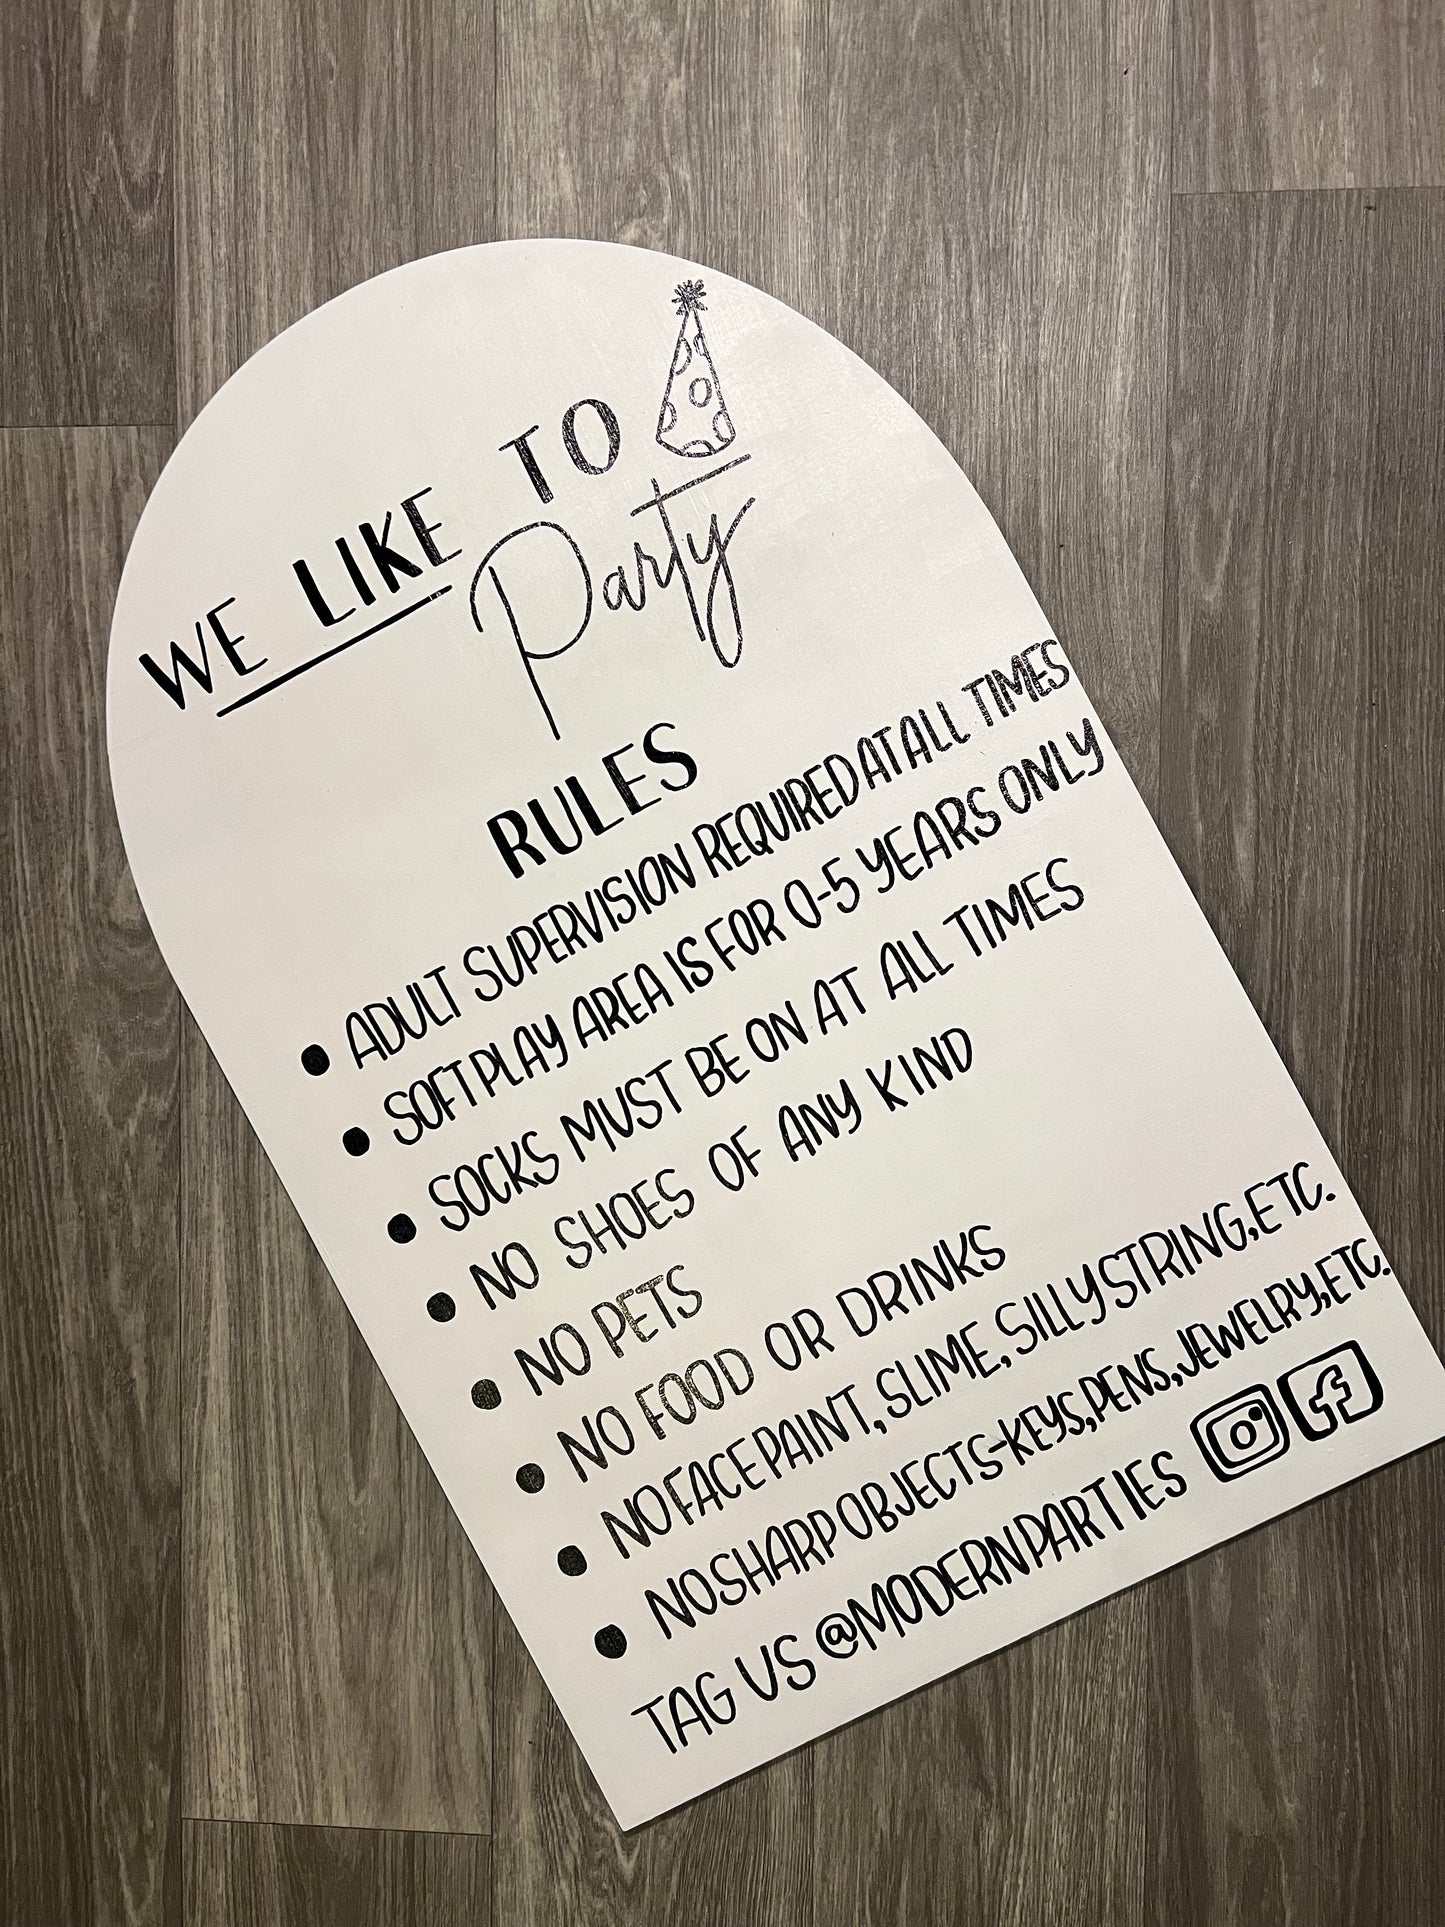 WE LIKE TO
Party
RULES
• ADULT SUPERVISION REQUIRED AT ALL TIMES
• SOFT PLAY AREA IS FOR 0-5 YEARS ONLY
• SOCKS MUST BE ON AT ALL TIMES
• NO SHOES OF ANY KIND
• NO PETS
• NO FOOD OR DRINKS
• NO FACE PAINT, SLIME, SILLY STRING, ETC.
• NO SHARP OBJECTS-KEYS, PENS, JEWELRY, ETC.
TAG US @MODERNPARTIES